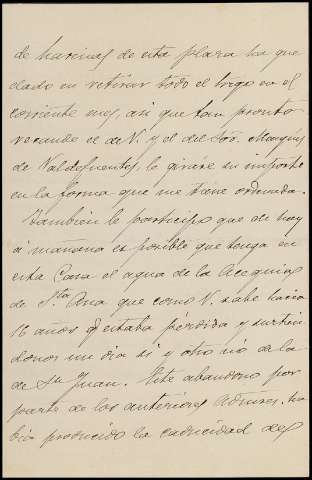 de harinas de esta plaza ha que
dado en retirar todo el trigo en el
corriente mes, asi que tan pronto
recaude el de V. y el del Sor. Marqués
de Valdefuentes, le giraré su importe
en la forma que me tiene ordenada.
Tambien le participo que de hoy
á mañana es posible que tenga en
esta Casa el agua de la Acequia
de Sta. Ana que como V. sabe hacia
16 años q estaba perdida y surtien
donos un dia si y otro no de la
de Sn Juan. Este abandono por
parte de los anteriores Admres. ha
bia producido la caducidad del